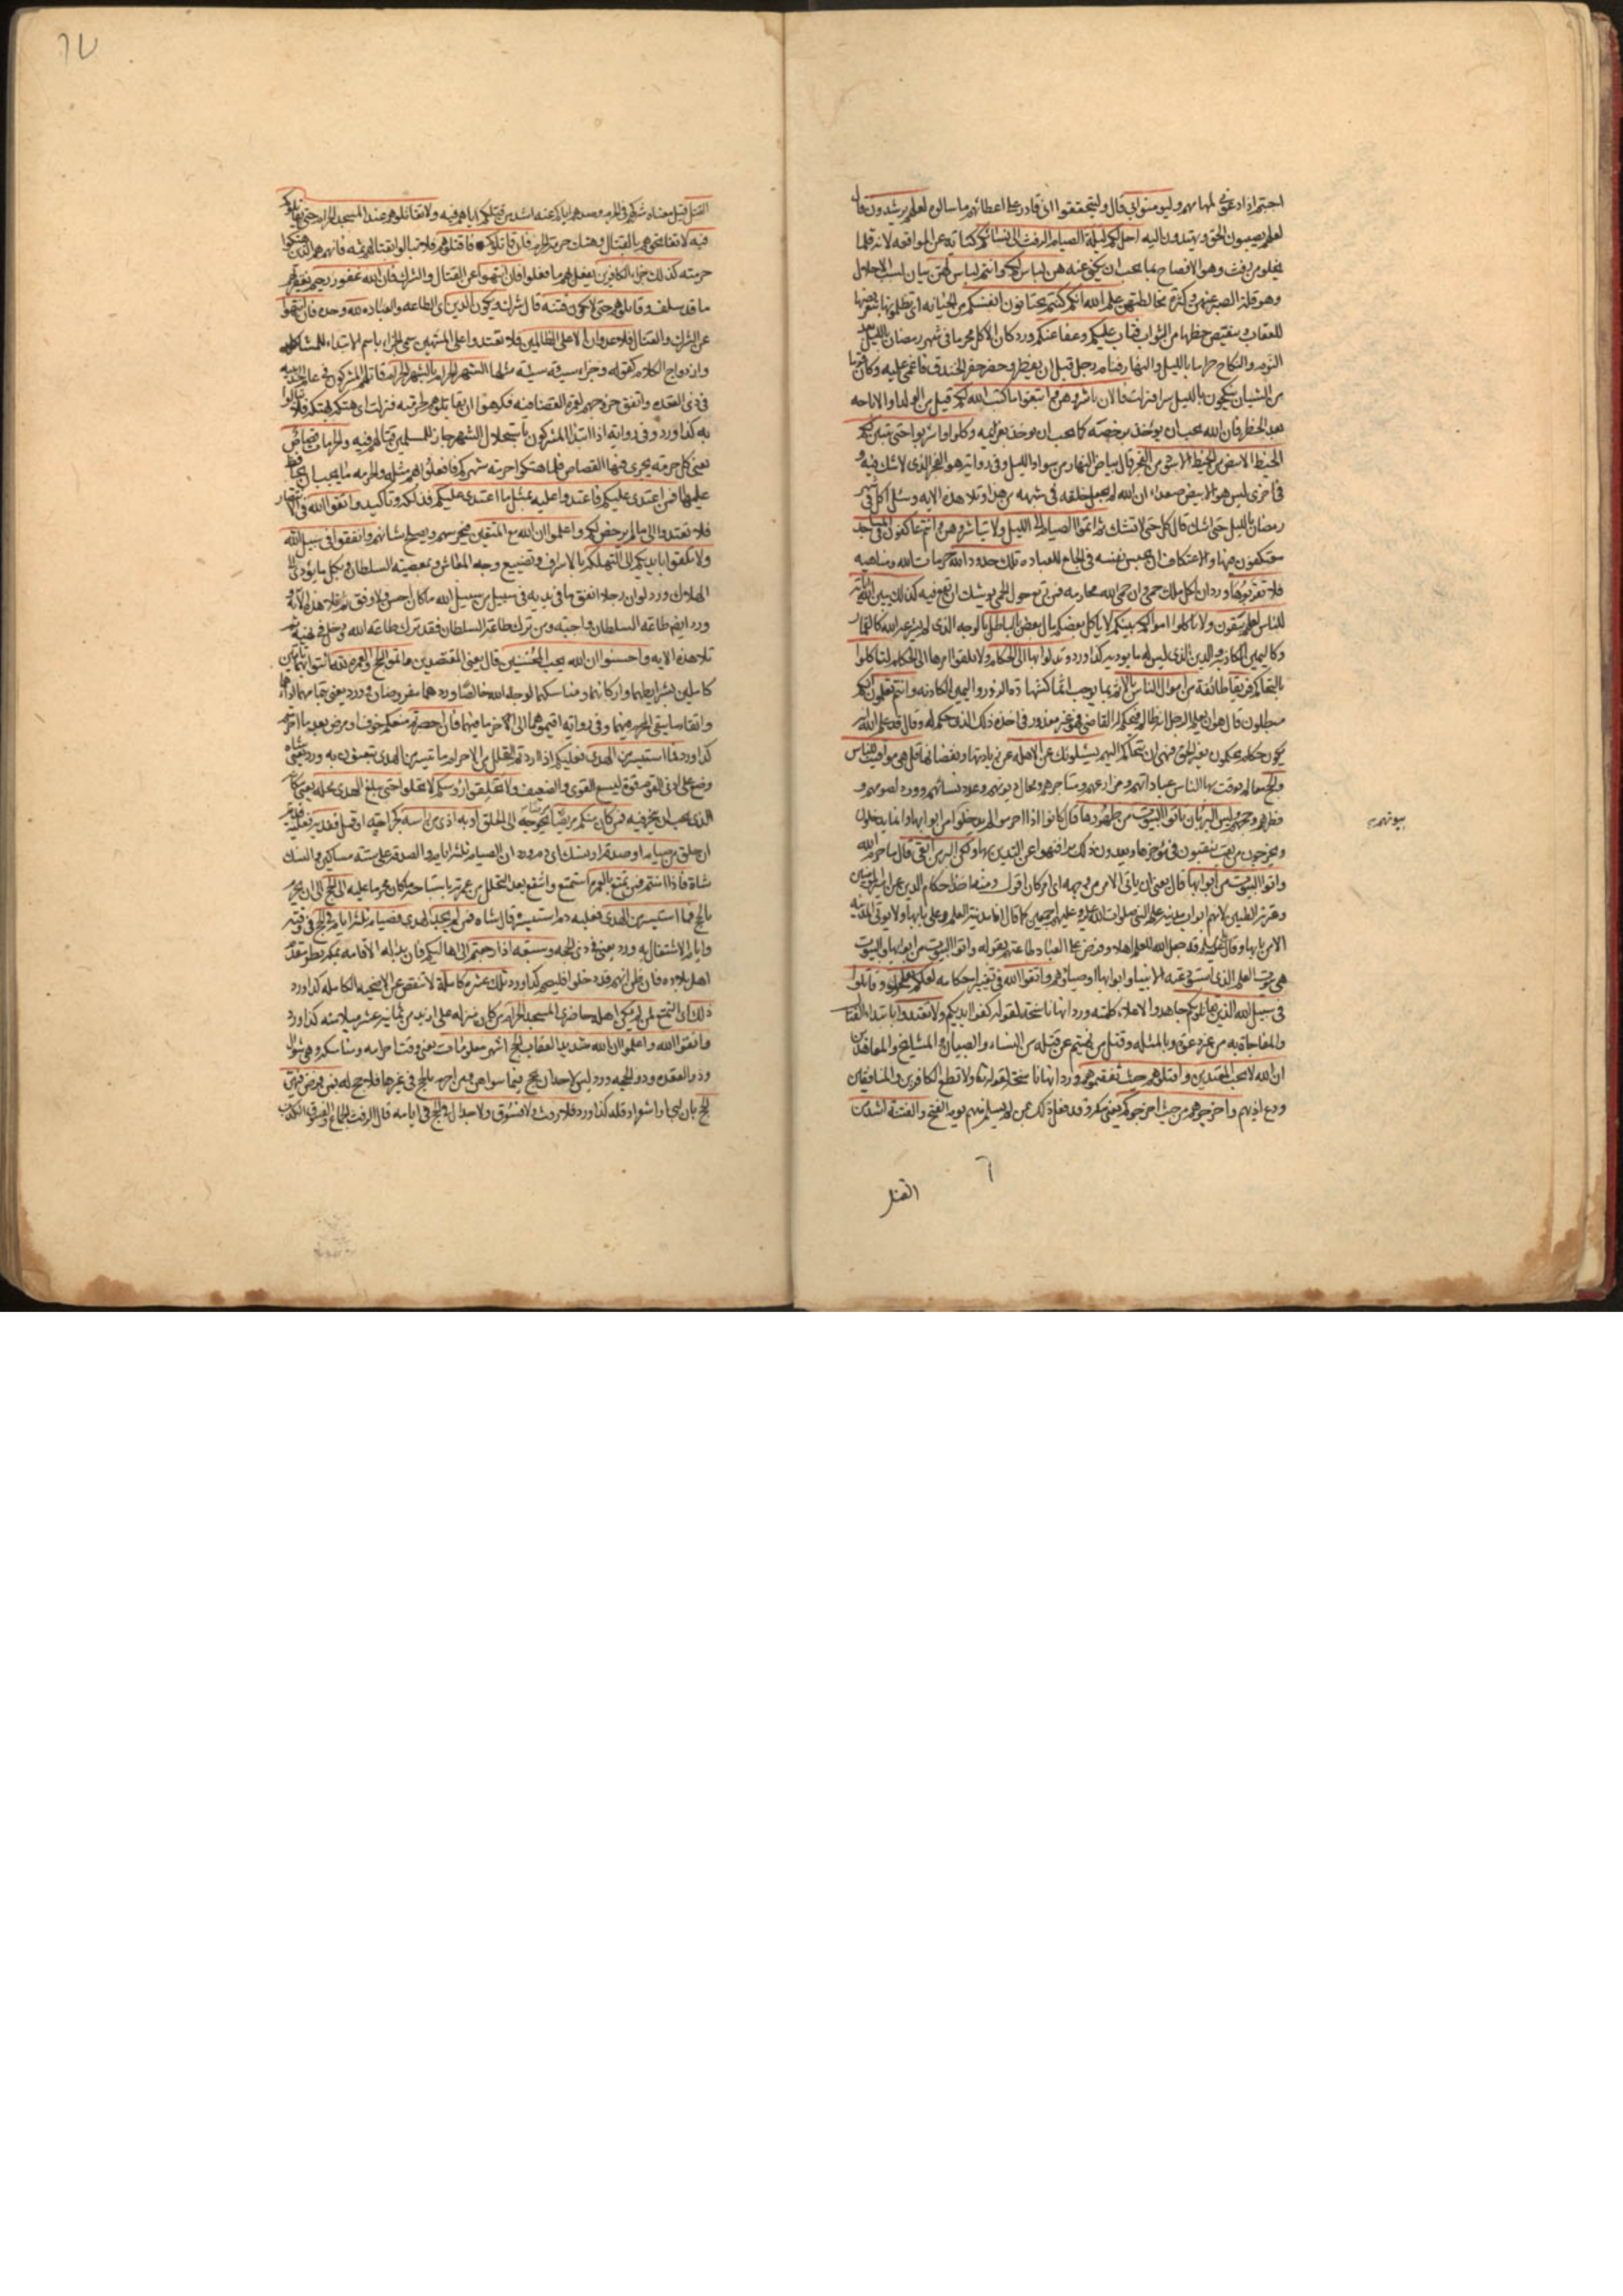 لعلهم يصيبون الحق ويهتدون اليه احل لكم ليلة الصيام الرفث الى نسائكم كناية عن المواقعه لانه قلما
يخلو من رفث وهو الافصاح بما يجب ان يكنى عنه هن لباس لكم وانتم لباس لهن بيان لسبب الاحلال
وهو قلة الصبر عنهن وكثرة مخالطتهن علم الله انكم كنتم تختانون انفسكم من الخيانه اى تظلمونها بتعريضها
للعقاب وتنقيص حظها من الثواب فتاب عليكم وعفا عنكم ورد كان الاكل محرما فى شهر رمضان بالليل بعد
النوم والنكاح حراما بالليل والنهار فنام رجل قبل ان يفطر وحضر حفر الخندق فاغمى عليه وكان قوما
من الشبان ينكحون بالليل سرا فنزلت فالان باشروهن وابتغوا ما كتب الله لكم قيل من الولد او الاباحه
بعد الحظر فان الله يحب ان يؤخذ برخصه كما يحب ان يؤخذ بعزايمه وكلوا واشربوا حتى يتبين لكم
الخيط الابيض من الخيط الاسود من الفجر قال بياض النهار من سواد الليل وفى رواية هو الفجر الذى لا شك فيه و
فى اخرى ليس هو الابيض صعدا ان الله لم يجعل خلقه فى شبهه من هذا وتلا هذه الايه وسئل اكل فى شهر
رمضان بالليل حتى اشك قال كل حتى لا تشك ثم اتموا الصيام الى الليل ولا تباشروهن وانتم عاكفون فى المساجد
معتكفون فيها والاعتكاف ان يحبس نفسه فى الجامع للعباده تلك حدود الله حرمات الله ومناهيه
فلا تقربوها ورد ان لكل ملك حمى وان حمى الله محارمه فمن رتع حول الحمى يوشك ان يقع فيه كذلك يبين الله اياته
للناس لعلهم يتقون ولا تاكلوا اموالكم بينكم لا ياكل بعضكم مال بعض بالباطل بالوجه الذى لم يشرعه الله كالقمار
وكاليمين الكاذبه والدين الذى ليس له ما يؤديه كذا ورد وتدلوا بها الى الحكام ولا تلقوا امرها الى الحكام لتاكلوا
بالتحاكم فريقا طائفة من اموال الناس بالاثم بما يوجب اثما كشهادة الزور واليمين الكاذبه وانتم تعلمون انكم
مبطلون قال هو ان يعلم الرجل انه ظالم فيحكم له القاضى فهو غير معذور فى اخذه ذلك الذى حكم له وقال قد علم الله انه
يكون حكام يحكمون بغير الحق فنهى ان يتحاكم اليهم يسئلونك عن الاهله عن زيادتها ونقصانها قل هى مواقيت للناس
والحج معالم يوقت بها الناس عباداتهم ومزارعهم ومتاجرهم ومحال ديونهم وعدد نسائهم وورد لصومهم و
فطرهم وحجهم وليس البر بان تاتوا البيوت من ظهورها قال كانوا اذا احرموا لم يدخلوا من ابوابها وانما يدخلون
ويخرجون من نقب ينقبون فى مؤخرها ويعدون ذلك برا فنهوا عن التدين بها ولكن البر من اتقى قال ما حرم الله
واتوا البيوت من ابوابها قال يعنى ان ياتى الامر من وجهه اى امر كان اقول ومنه اخذ احكام الدين عن امير المؤمنين
وعترته الطيبين لانهم ابواب مدينة علم النبى صلوات الله عليه وعليهم اجمعين كما قال انا مدينة العلم وعلى بابها ولا يؤتى المدينه
الا من بابها وقال قد جعل الله للعلم اهلا وفرض على العباد طاعتهم بقوله واتوا البيوت من ابوابها والبيوت
هى بيوت العلم الذى استودعته الانبيا وابوابها اوصياؤهم واتقوا الله فى تغيير احكامه لعلكم تفلحون وقاتلوا
فى سبيل الله الذين يقاتلونكم جاهدوا لاعلاء كلمته ورد انها ناسخة لقوله كفوا ايديكم ولا تعتدوا بابتداء القتال
والمفاجاة به من غير دعوة وبالمثله وقتل من نهيتم عن قتله من النساء والصبيان والمشايخ والمعاهدين
ان الله لا يحب المعتدين واقتلوهم حيث ثقفتموهم ورد انها ناسخة لقوله تعالى ولا تطع الكافرين والمنافقين
ودع اذيهم واخرجوهم من حيث اخرجوكم يعنى مكه وقد فعل ذلك بمن لم يسلم منهم يوم الفتح والفتنة اشد من
بيوتهم
القتل
٦٧
فيه لا تفاتحوهم بالقتال وهتك حرمة الحرم فان قاتلوكم فاقتلوهم فلا تبالوا بقتالهم ثمه فانهم هم الذين هتكوا
حرمته كذلك جزاء الكافرين يفعل بهم ما فعلوا فان انتهوا عن القتال والشرك فان الله غفور رحيم يغفر لهم
ما قد سلف وقاتلوهم حتى لا تكون فتنة قال شرك ويكون الدين اى الطاعه والعباده لله وحده فان انتهوا
عن الشرك والقتال فلا عدوان الا على الظالمين فلا تعتدوا على المنتهين سمى الجزاء باسم الابتداء للمشاكله
وازدواج الكلام كقوله وجزاء سيئة سيئة مثلها الشهر الحرام بالشهر الحرام قاتلهم المشركون فى عام الحديبيه
فى ذى القعده واتفق خروجهم لعمرة القضا فيه فكرهوا ان يقاتلوهم لحرمته فنزلت اى هتكه بهتكه فلا تبالوا
به كذا ورد وفى رواية اذا ابتدا المشركون باستحلال الشهر جاز للمسلمين قتالهم فيه والحرمات قصاص
يعنى كل حرمه يجرى فيها القصاص فلما هتكوا حرمة شهركم فافعلوا بهم مثله والحرمه ما يجب ان يحافظ
عليها فمن اعتدى عليكم فاعتدوا عليه بمثل ما اعتدى عليكم فذلكه وتاكيد واتقوا الله فى الانتصار
فلا تعتدوا الى ما لم يرخص لكم واعلموا ان الله مع المتقين فيحرسهم ويصلح شانهم وانفقوا فى سبيل الله
ولا تلقوا بايديكم الى التهلكه بالاسراف وتضييع وجه المعاش وبمعصية السلطان وبكل ما يؤدى الى
الهلاك ورد لو ان رجلا انفق ما فى يديه فى سبيل من سبيل الله ما كان احسن ولا وفق ثم تلا هذه الايه و
ورد ايضا طاعة السلطان واجبه ومن ترك طاعة السلطان فقد ترك طاعة الله ودخل فى نهيه ثم
تلا هذه الايه واحسنوا ان الله يحب المحسنين قال يعنى المقتصدين واتموا الحج والعمرة لله ائتوا بهما تامين
كاملين بشرايطهما واركانهما ومناسكهما لوجه الله خالصا ورد هما مفروضان وورد يعنى بتمامهما اداءهما
واتقاء ما يتقى المحرم فيهما وفى رواية اقيموهما الى اخر ما فيهما فان احصرتم منعكم خوف او مرض بعد ما احرمتم
كذا ورد فما استيسر من الهدى فعليكم اذا اردتم التحلل من الاحرام ما تيسر من الهدى تبعثون به ورد يعنى شاه
وضع على ادنى القوم قوة ليسع القوى والضعيف ولا تحلقوا رؤسكم لا تحلوا حتى يبلغ الهدى محله يعنى مكانه
الذى يجب ان ينحر فيه فمن كان منكم مريضا مرضا يحوجه الى الحلق او به اذى من راسه كجراحة او قمل ففدية فعليه فدية
ان حلق من صيام او صدقة او نسك اى دم ورد ان الصيام ثلثة ايام والصدقه على سته مساكين والنسك
شاة فاذا امنتم فمن تمتع بالعمرة استمتع وانتفع بعد التحلل من عمرته باستباحة ما كان محرما عليه الى الحج الى ان يحرم
بالحج فما استيسر من الهدى فعليه دم استيسره قال شاه فمن لم يجد الهدى فصيام ثلثة ايام فى الحج فى وقته
وايام الاشتغال به ورد يعنى فى ذى الحجه وسبعه اذا رجعتم الى اهاليكم فان بدا له الاقامه بمكه نظر مقدم
اهل بلاده فان ظن انهم قد دخلوا فليصم كذا ورد تلك عشرة كاملة لا تنقص عن الاضحيه الكامله كذا ورد
ذلك اى التمتع لمن لم يكن اهله حاضرى المسجد الحرام من كان منزله على ازيد من ثمانية عشر ميلا منه كذا ورد
واتقوا الله واعلموا ان الله شديد العقاب الحج اشهر معلومات يعنى وقت احرامه ومناسكه وهى شوال
وذو القعده وذو الحجه وورد ليس لاحد ان يحج فيما سواهن ومن احرم بالحج فى غيرها فلا حج له فمن فرض فيهن
الحج بان لبى او اشعر او قلد كذا ورد فلا رفث ولا فسوق ولا جدال فى الحج فى ايامه قال الرفث الجماع والفسوق الكذب